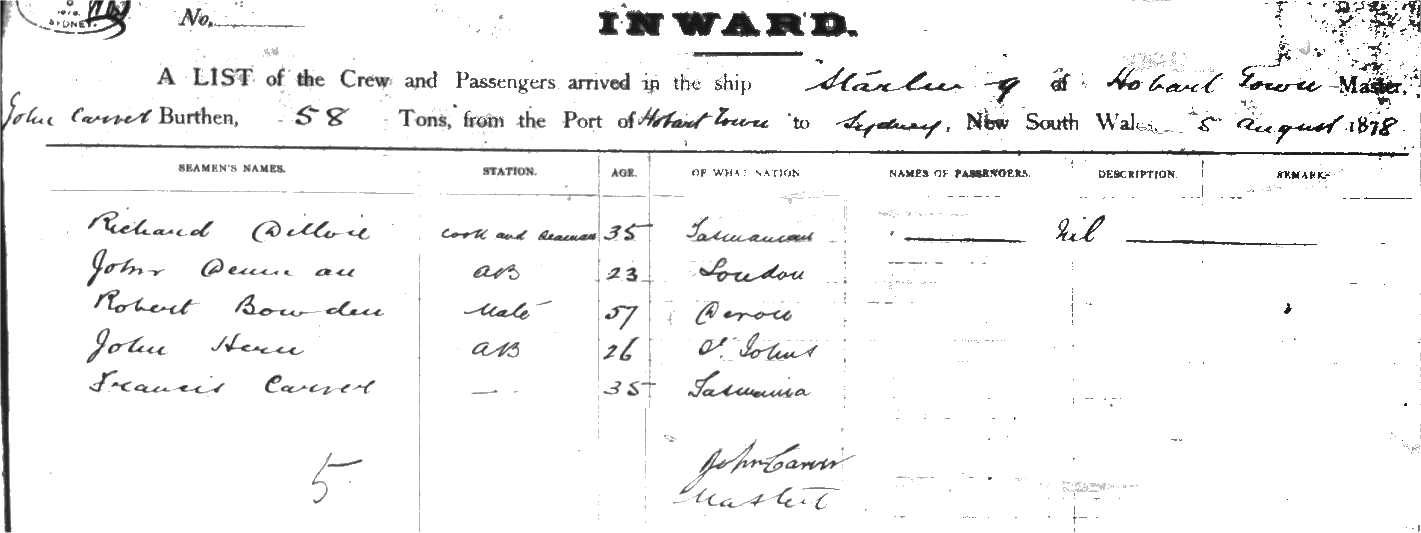 SYDNEY.
No.
INWARD.
A LIST of the Crew and Passengers arrived in the ship Starling of Hobart Town Master,
John Carver Burthen, 58 Tons, from the Port of Hobart Town to Sydney, New South Wales 5 August 1878
SEAMEN'S NAMES. STATION. AGE. OF WHAT NATION NAMES OF PASSENGERS. DESCRIPTION. REMARKS
Richard cook and seaman 35 Tasmanian Nil
John Denman AB 23 London
Robert Bowden Mate 57 Devon
John Hern AB 26 St Johns
Francis Carver — 35 Tasmania
5 John Carver
Master